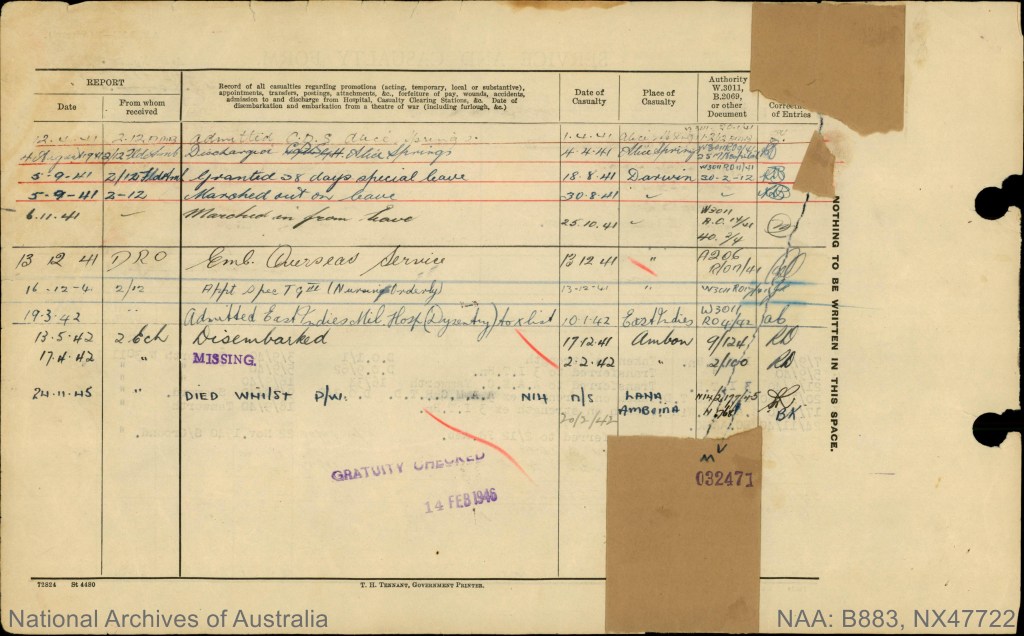 REPORT
Date
From whom received
Record of all casualties regarding promotions (acting, temporary, local or substantive), appointments, transfers, postings, attachments, &c., forfeiture of pay, wounds, accidents, admission to and discharge from Hospital, Casualty Clearing Stations, &c. Date of disembarkation and embarkation from a theatre of war (including furlough, &c.)
Date of Casualty
Place of Casualty
Authority W.3011, B.2069, or other Document
of Entries
12.4.41 admitted 1.4.41
Discharged Alice Springs 4-4-41 Alice Springs RD
5-9-41 Granted 38 days special leave 18-8-41 Darwin 30-2-12 RD
5-9-41 2-12 Marched out on leave 30-8-41 "
6.11.41 — Marched in from leave 25.10.41 " W3011
13 12 41 DRO Emb. Overseas Service 13 12 41 " A206
16-12-4 2/12 Appt Spec Tg III (Nursing Orderly) 13-12-41 "
19.3.42 Admitted East Indies Mil. Hosp (Dysentry) to x list 10.1.42 East Indies W3011
13.5.42 2.Ech Disembarked 17 12 41 Ambon 9/124 RD
17.4.42 " MISSING. 2.2.42 " 2/100 RD
24.11.45 " DIED WHILST P/W. NIH n/s LAHA
20/2/42 AMBOINA BK
GRATUITY CHECKED
14 FEB 1946
032471
NOTHING TO BE WRITTEN IN THIS SPACE.
72824 St 4480
T. H. TENNANT, GOVERNMENT PRINTER.
National Archives of Australia
NAA: B883, NX47722